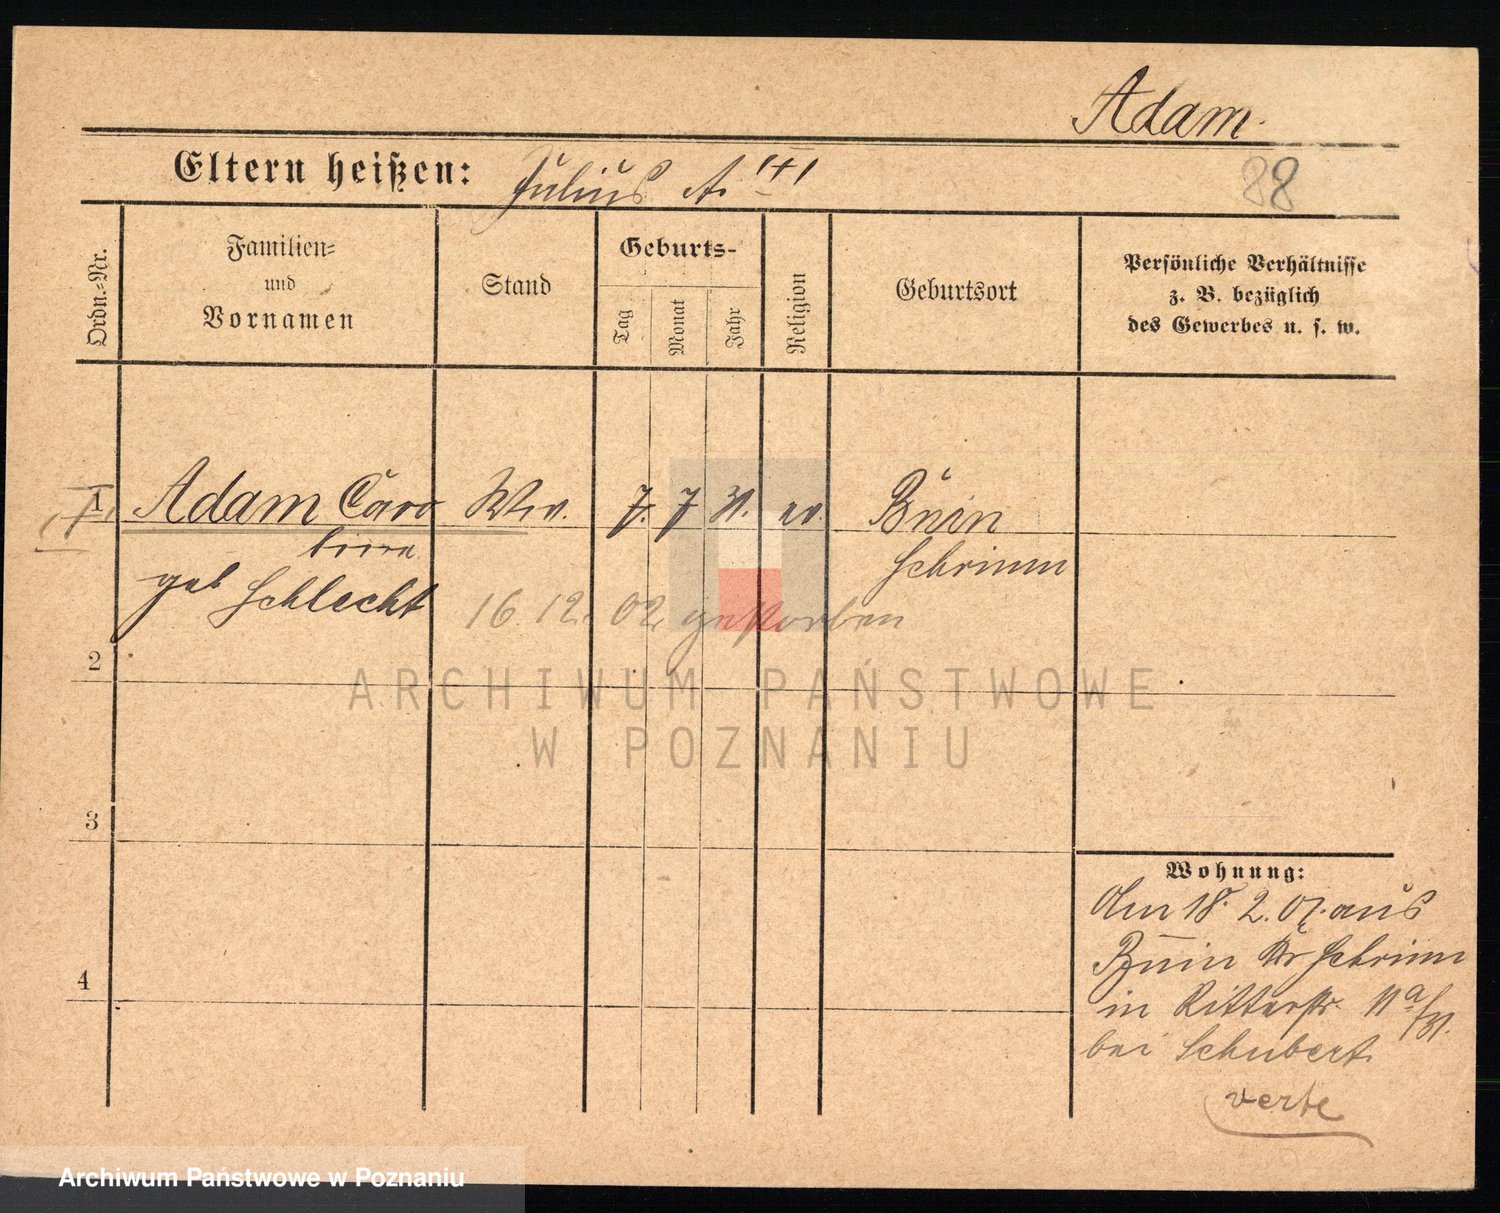 Adam.
88
Eltern heißen: Julius A.
Ordn.=Nr.
Familien=
und
Vornamen
Stand
Geburts-
Tag
Monat
Jahr
Religion
Geburtsort
Persönliche Verhältnisse
z. B. bezüglich
des Gewerbes u. s. w.
1
Adam Caro Ww. 7. 7 31. ev. Bnin
line Schrimm
geb Schlecht
16. 12. 02. gestorben
2
ARCHIWUM PAŃSTWOWE
W POZNANIU
3
4
Wohnung:
Am 18. 2. 01. aus
Bnin Kr Schrimm
in Ritterstr. 11a/31.
bei Schubert.
verte
Archiwum Państwowe w Poznaniu